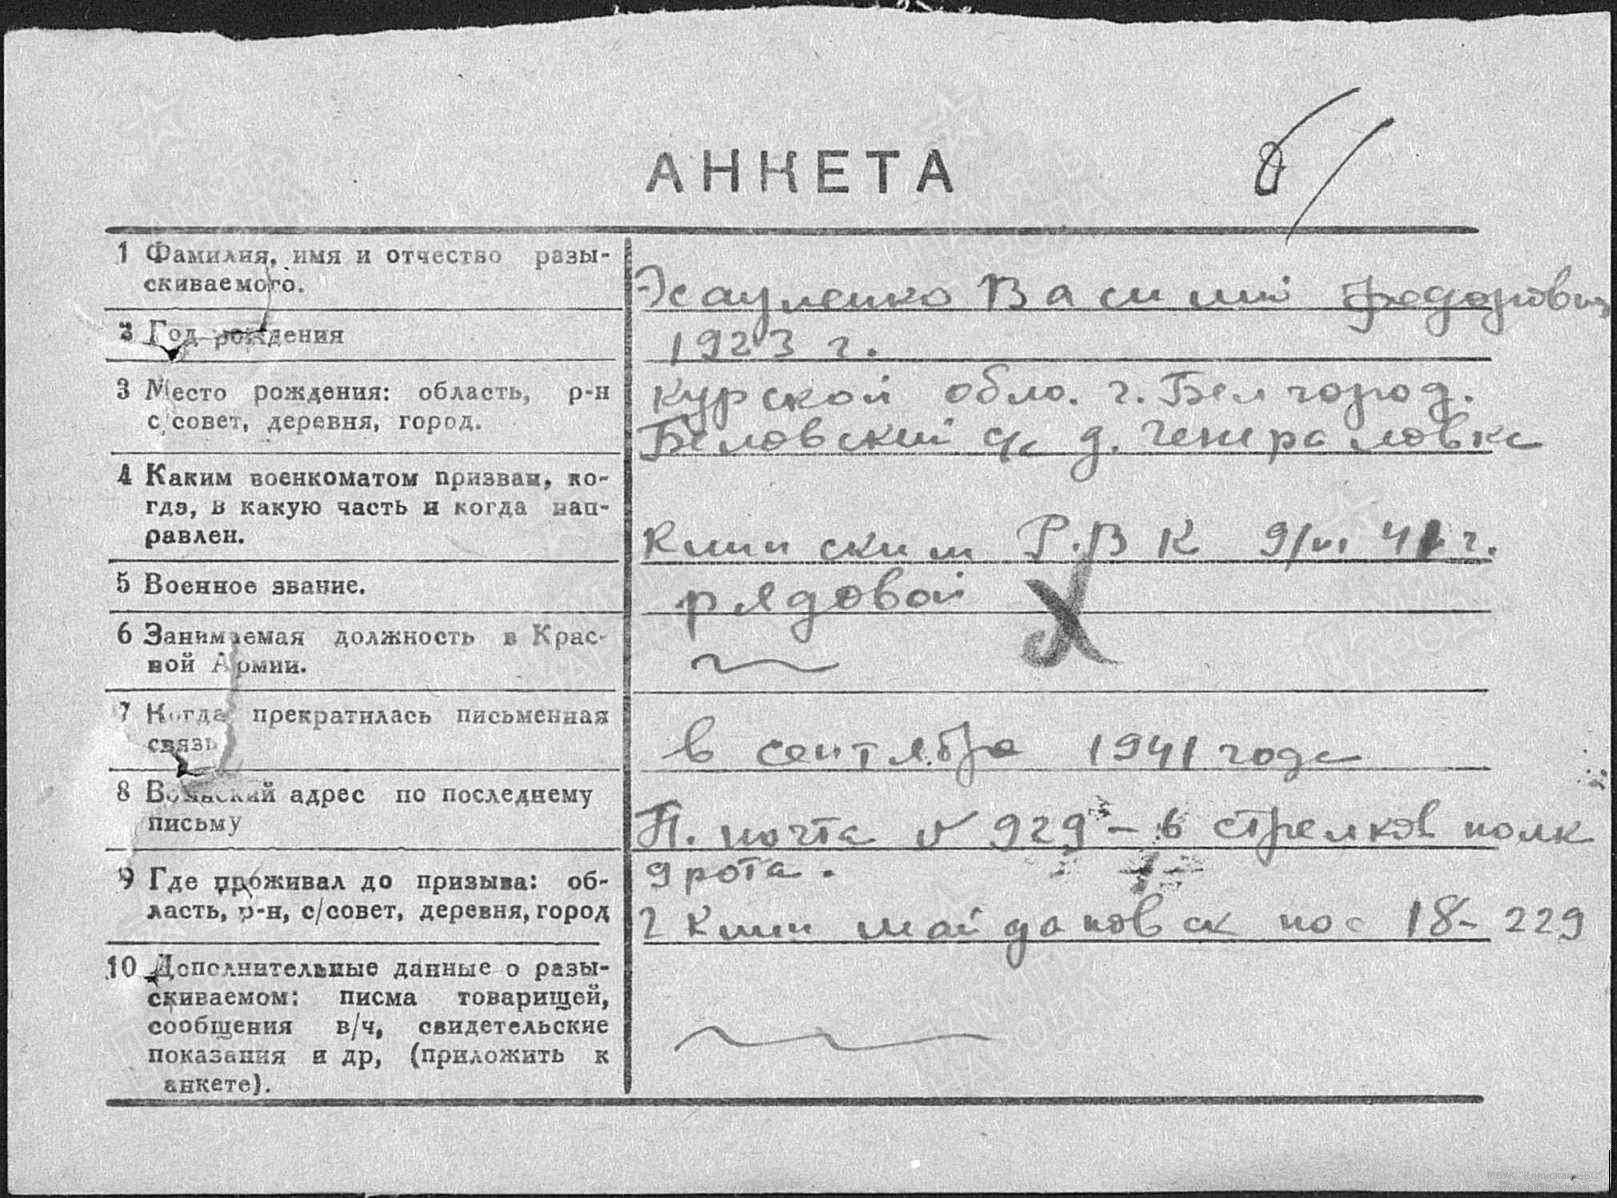 АНКЕТА
1 Фамилия, имя и отчество разы-
скиваемого.
Эсауленко Василий Федорович
2 Год рождения
1923 г.
3 Место рождения: область, р-н
с/совет, деревня, город.
Курской обло. г. Белгород.
Беловский с/с д. Генераловка
4 Каким военкоматом призван, ко-
гда, в какую часть и когда нап-
равлен.
Клинским Р.В.К 9/VI 41 г.
5 Военное звание.
рядовой
6 Занимаемая должность в Крас-
ной Армии.
7 Когда прекратилась письменная
связь
в сентябре 1941 года
8 Воинский адрес по последнему
письму
П. почта № 929 – 6 стрелков полк
9 рота.
9 Где проживал до призыва: об-
ласть, р-н, с/совет, деревня, город
г Клин майдановск пос 18-229
10 Дополнительные данные о разы-
скиваемом: писма товарищей,
сообщения в/ч, свидетельские
показания и др, (приложить к
анкете).